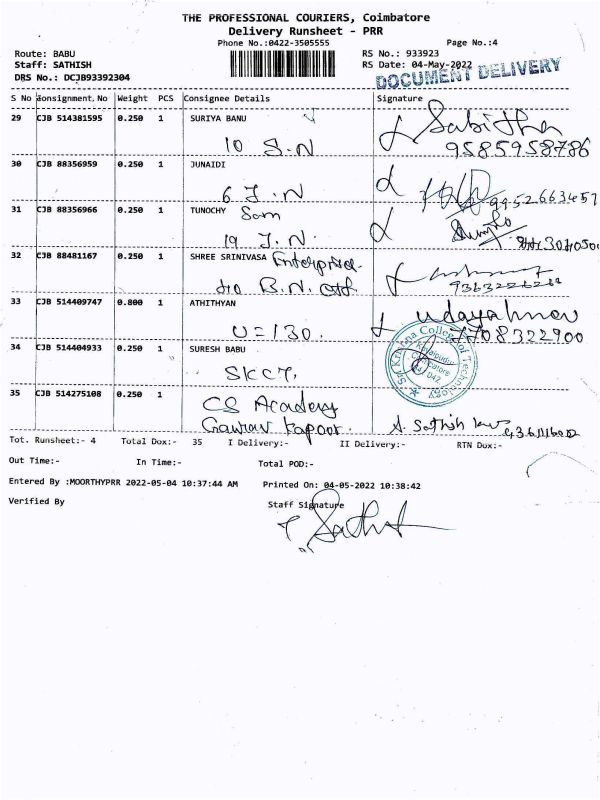 THE PROFESSIONAL COURIERS, Coimbatore
Delivery Runsheet - PRR
Phone No.:0422-3505555
Page No.:4
Route: BABU
RS No.: 933923
Staff: SATHISH
RS Date: 04-May-2022
DRS No.: DCJB93392304
DOCUMENT DELIVERY
S No Consignment, No Weight PCS Consignee Details Signature
29 CJB 514381595 0.250 1 SURIYA BANU
10 S.N Sabitha
9585958786
30 CJB 88356959 0.250 1 JUNAIDI
6 J.N 9952663457
31 CJB 88356966 0.250 1 TUNOCHY
Som
19 J.N.
32 CJB 88481167 0.250 1 SHREE SRINIVASA Enterprise
B.N.
33 CJB 514409747 0.800 1 ATHITHYAN
U=130. 7708322900
34 CJB 514404933 0.250 1 SURESH BABU
SKCT,
Sri Krishna College of Technology
Kovaipudur
Coimbatore
642 042
35 CJB 514275108 0.250 1
CS Academy
Gaurav Kapoor. A. Sathish
Tot. Runsheet:- 4 Total Dox:- 35 I Delivery:- II Delivery:- RTN Dox:-
Out Time:- In Time:- Total POD:-
Entered By :MOORTHYPRR 2022-05-04 10:37:44 AM Printed On: 04-05-2022 10:38:42
Verified By Staff Signature